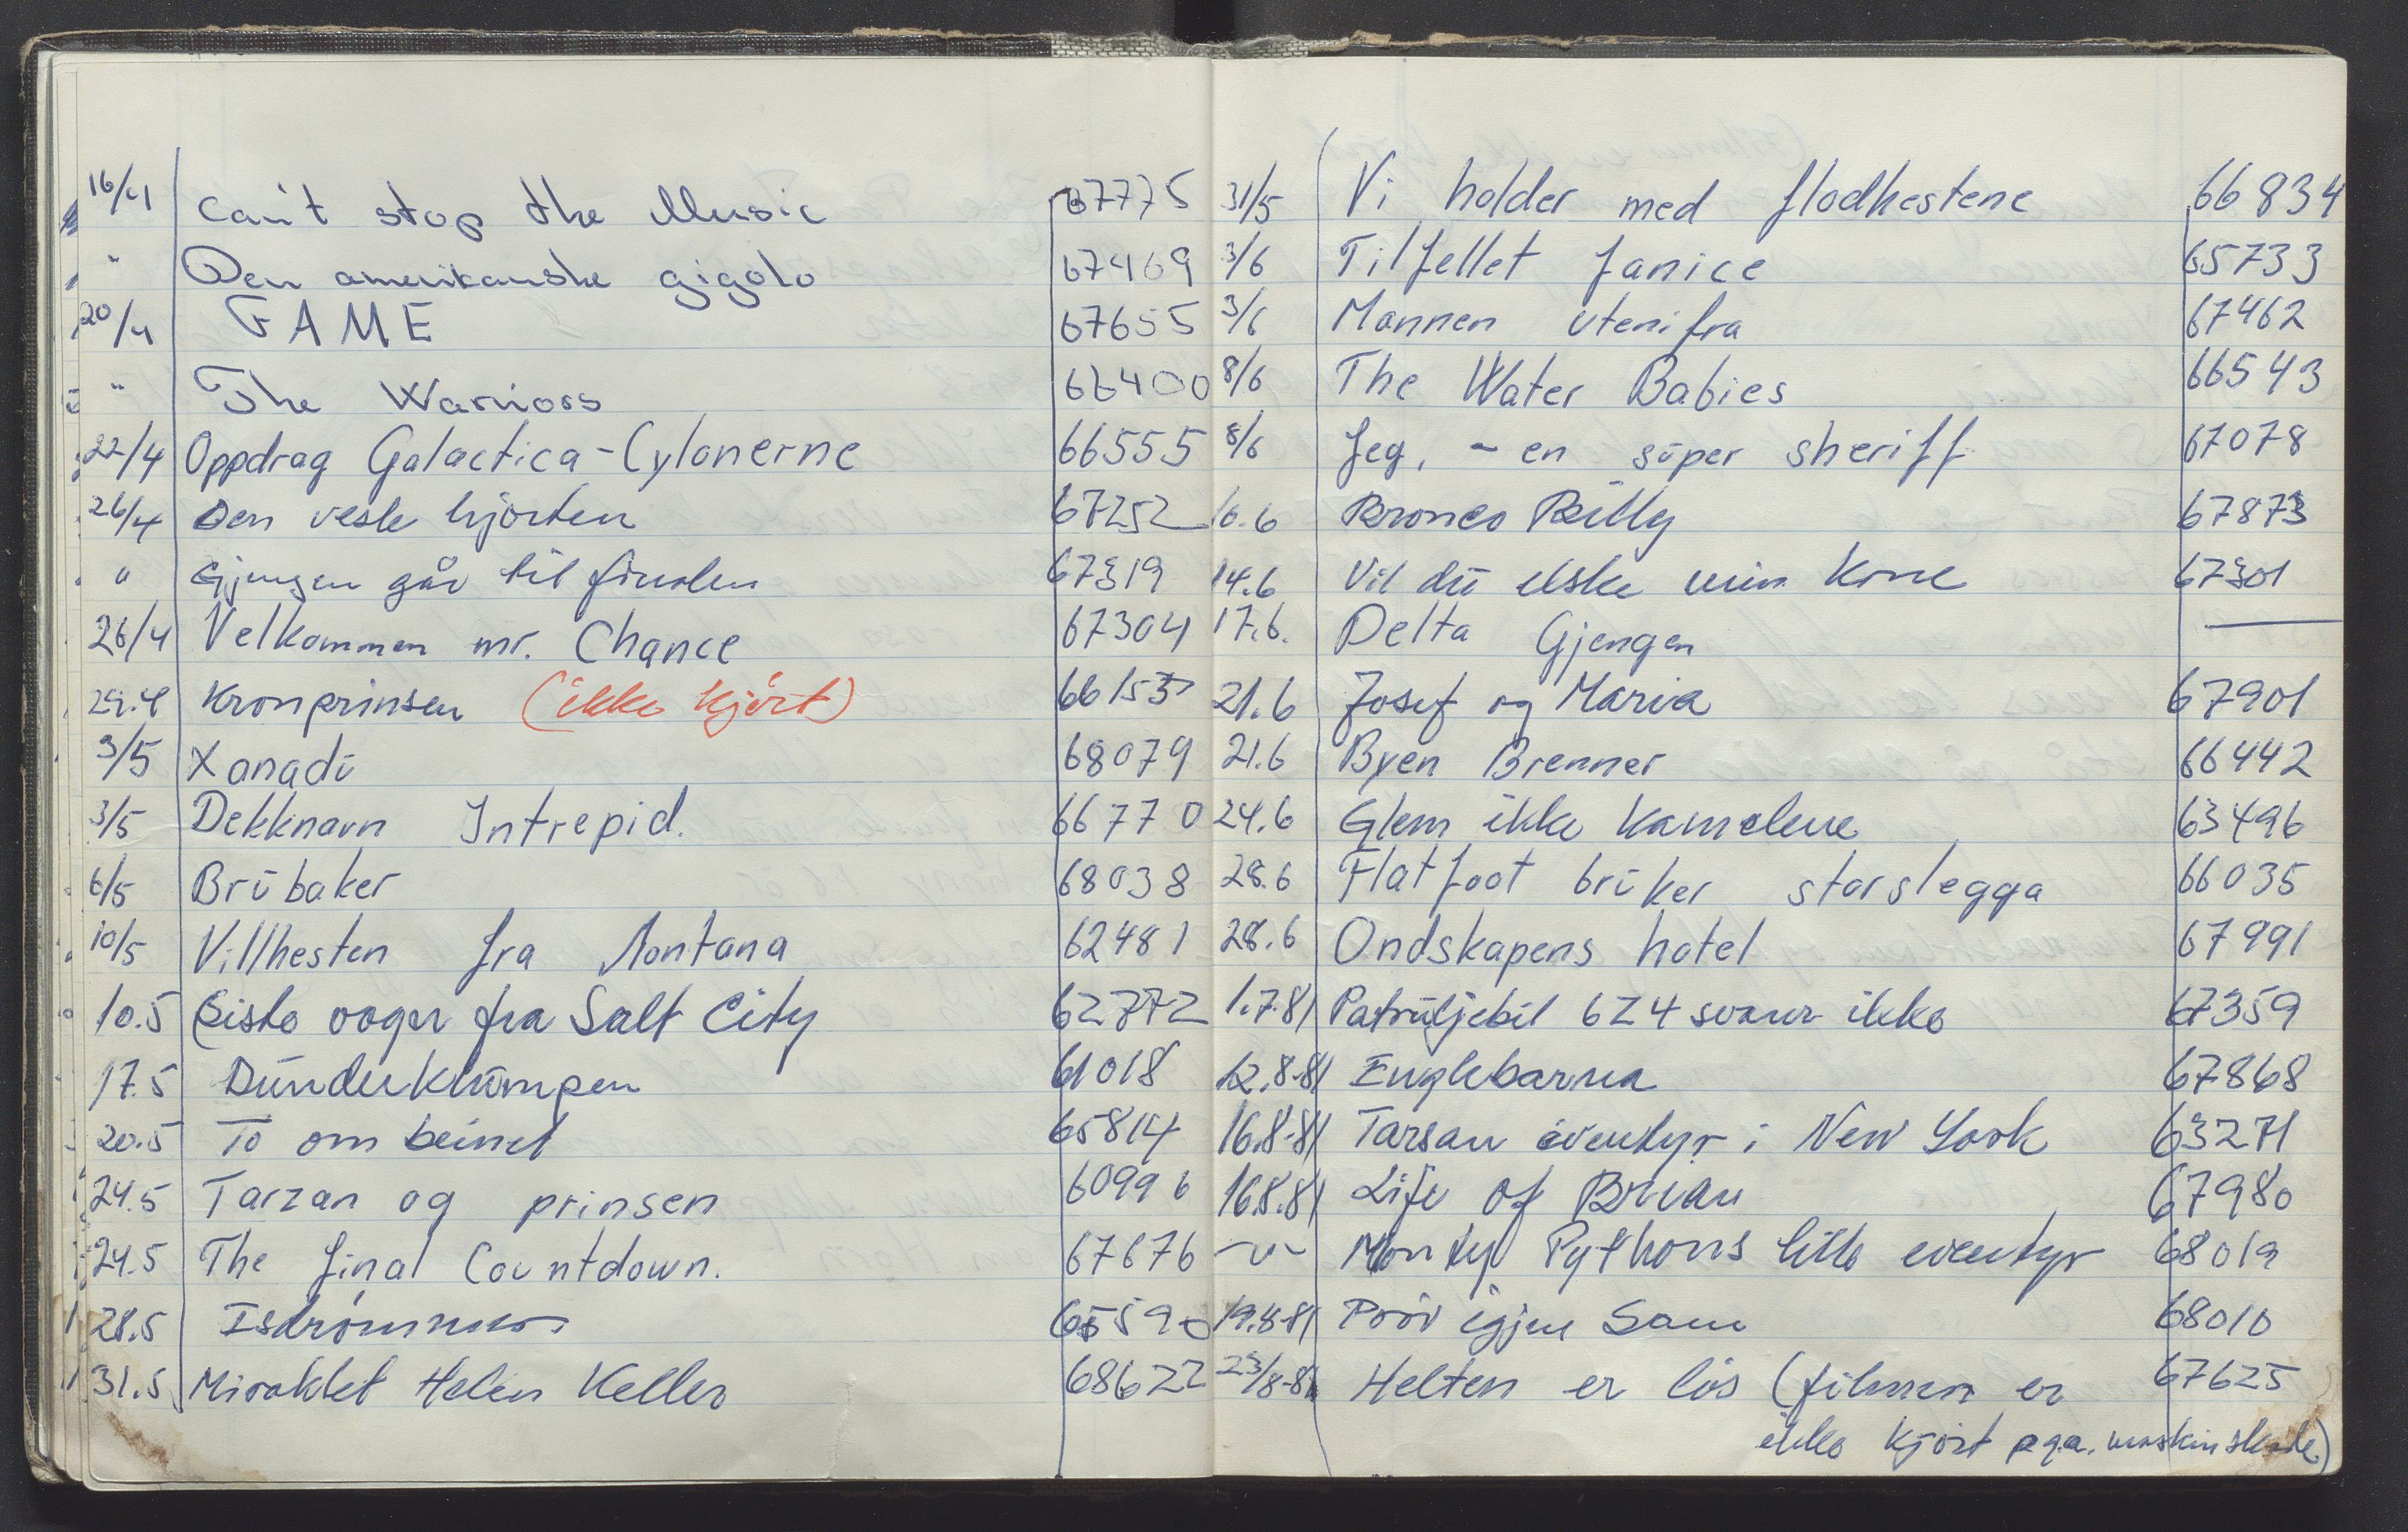 16/4 Can't stop the Music 67775
" Den amerikanske gigolo 67469
20/4 FAME 67655
" The Warriors 66400
22/4 Oppdrag Galactica - Cylonerne 66555
26/4 Den vesle hjorten 67252
" Gjengen går til finalen 67319
26/4 Velkommen mr. Chance 67304
29.4 Kronprinsen (ikke kjørt) 66155
3/5 Xanadu 68079
3/5 Dekknavn Intrepid. 66770
6/5 Brubaker 68038
10/5 Villhesten fra Montana 62481
10.5 Siste vogn fra Salt City 62772
17.5 Dunderklumpen 61018
20.5 To om beinet 65814
24.5 Tarzan og prinsen 60996
24.5 The final Countdown. 67676
28.5 Isdrømmen 65590
31.5 Miraklet Helen Keller 68622
31/5 Vi holder med flodhestene 66834
3/6 Tilfellet Janice 65733
3/6 Mannen utenifra 67462
8/6 The Water Babies 66543
8/6 Jeg, - en super sheriff 67078
10.6 Bronco Billy 67873
14.6 Vil du elske min kone 67301
17.6. Delta Gjengen —
21.6 Josef og Maria 67901
21.6 Byen Brenner 66442
24.6 Glem ikke kamelene 63496
28.6 Flatfoot bruker storslegga 66035
28.6 Ondskapens hotel 67991
1.7.81 Patruljebil 6Z4 svarer ikke 67359
12.8.81 Englebarna 67868
16.8.81 Tarsan eventyr i New York 63271
16.8.81 Life of Brian 67980
-"- Monty Pythons lille eventyr 68019
19.8.81 Prøv igjen Sam 68010
23/8-81 Helten er løs (filmen er 67625
ikke kjørt pga. maskinskade)